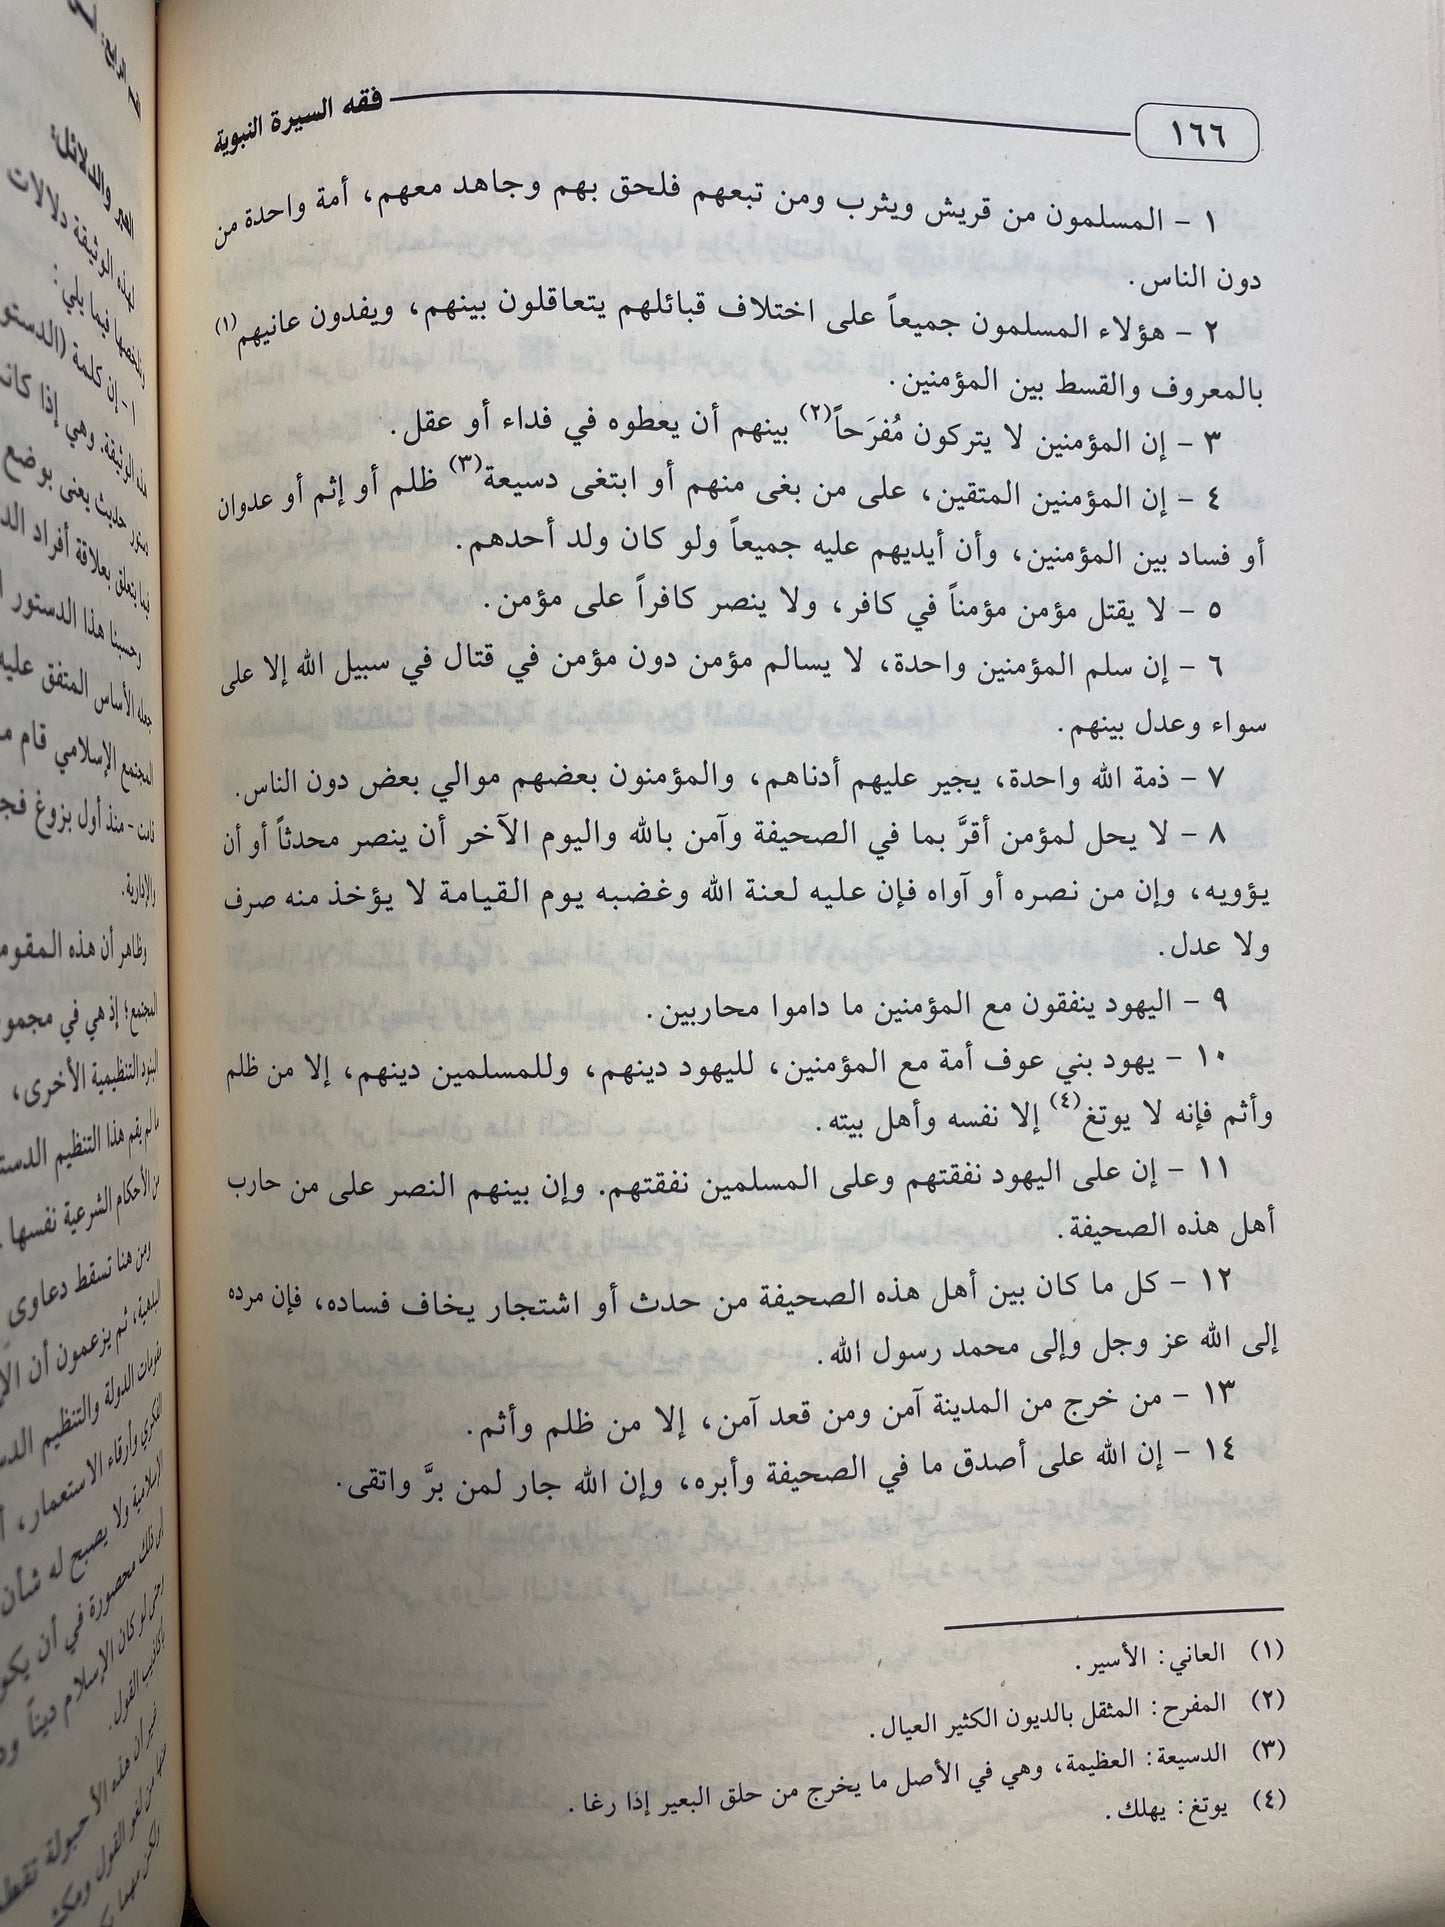 ١٦٦
فقه السيرة النبوية
١ - المسلمون من قريش ويثرب ومن تبعهم فلحق بهم وجاهد معهم، أمة واحدة من
دون الناس.
٢ - هؤلاء المسلمون جميعاً على اختلاف قبائلهم يتعاقلون بينهم، ويفدون عانيهم(١)
بالمعروف والقسط بين المؤمنين.
٣ - إن المؤمنين لا يتركون مُفرَحاً(٢) بينهم أن يعطوه في فداء أو عقل.
٤ - إن المؤمنين المتقين، على من بغى منهم أو ابتغى دسيعة(٣) ظلم أو إثم أو عدوان
أو فساد بين المؤمنين، وأن أيديهم عليه جميعاً ولو كان ولد أحدهم.
٥ - لا يقتل مؤمن مؤمناً في كافر، ولا ينصر كافراً على مؤمن.
٦ - إن سلم المؤمنين واحدة، لا يسالم مؤمن دون مؤمن في قتال في سبيل الله إلا على
سواء وعدل بينهم.
٧ - ذمة الله واحدة، يجير عليهم أدناهم، والمؤمنون بعضهم موالي بعض دون الناس.
٨ - لا يحل لمؤمن أقرَّ بما في الصحيفة وآمن بالله واليوم الآخر أن ينصر محدثاً أو أن
يؤويه، وإن من نصره أو آواه فإن عليه لعنة الله وغضبه يوم القيامة لا يؤخذ منه صرف
ولا عدل.
٩ - اليهود ينفقون مع المؤمنين ما داموا محاربين.
١٠ - يهود بني عوف أمة مع المؤمنين، لليهود دينهم، وللمسلمين دينهم، إلا من ظلم
وأثم فإنه لا يوتغ(٤) إلا نفسه وأهل بيته.
١١ - إن على اليهود نفقتهم وعلى المسلمين نفقتهم. وإن بينهم النصر على من حارب
أهل هذه الصحيفة.
١٢ - كل ما كان بين أهل هذه الصحيفة من حدث أو اشتجار يخاف فساده، فإن مرده
إلى الله عز وجل وإلى محمد رسول الله.
١٣ - من خرج من المدينة آمن ومن قعد آمن، إلا من ظلم وأثم.
١٤ - إن الله على أصدق ما في الصحيفة وأبره، وإن الله جار لمن برَّ واتقى.
(١) العاني: الأسير.
(٢) المفرح: المثقل بالديون الكثير العيال.
(٣) الدسيعة: العظيمة، وهي في الأصل ما يخرج من حلق البعير إذا رغا.
(٤) يوتغ: يهلك.
العبر والدلائل:
لهذه الوثيقة دلالات
ونلخصها فيما يلي:
١ - إن كلمة (الدستو
هذه الوثيقة. وهي إذا كان
دستور حديث يعنى بوضع
فيما يتعلق بعلاقة أفراد الد
وحسبنا هذا الدستور ا
جعله الأساس المتفق عليه
المجتمع الإسلامي قام م
قامت - منذ أول بزوغ فج
والإدارية.
وظاهر أن هذه المقوم
المجتمع؛ إذ هي في مجمو
البنود التنظيمية الأخرى،
ما لم يقم هذا التنظيم الدست
من الأحكام الشرعية نفسها.
ومن هنا تسقط دعاوى
البدهية، ثم يزعمون أن الإ
مقومات الدولة والتنظيم الدس
الفكري وأرقاء الاستعمار،
الإسلامية ولا يصبح له شأن
محصورة في أن يكو
لو كان الإسلام ديناً ود
القول.
غير أن هذه الأحبولة تقط